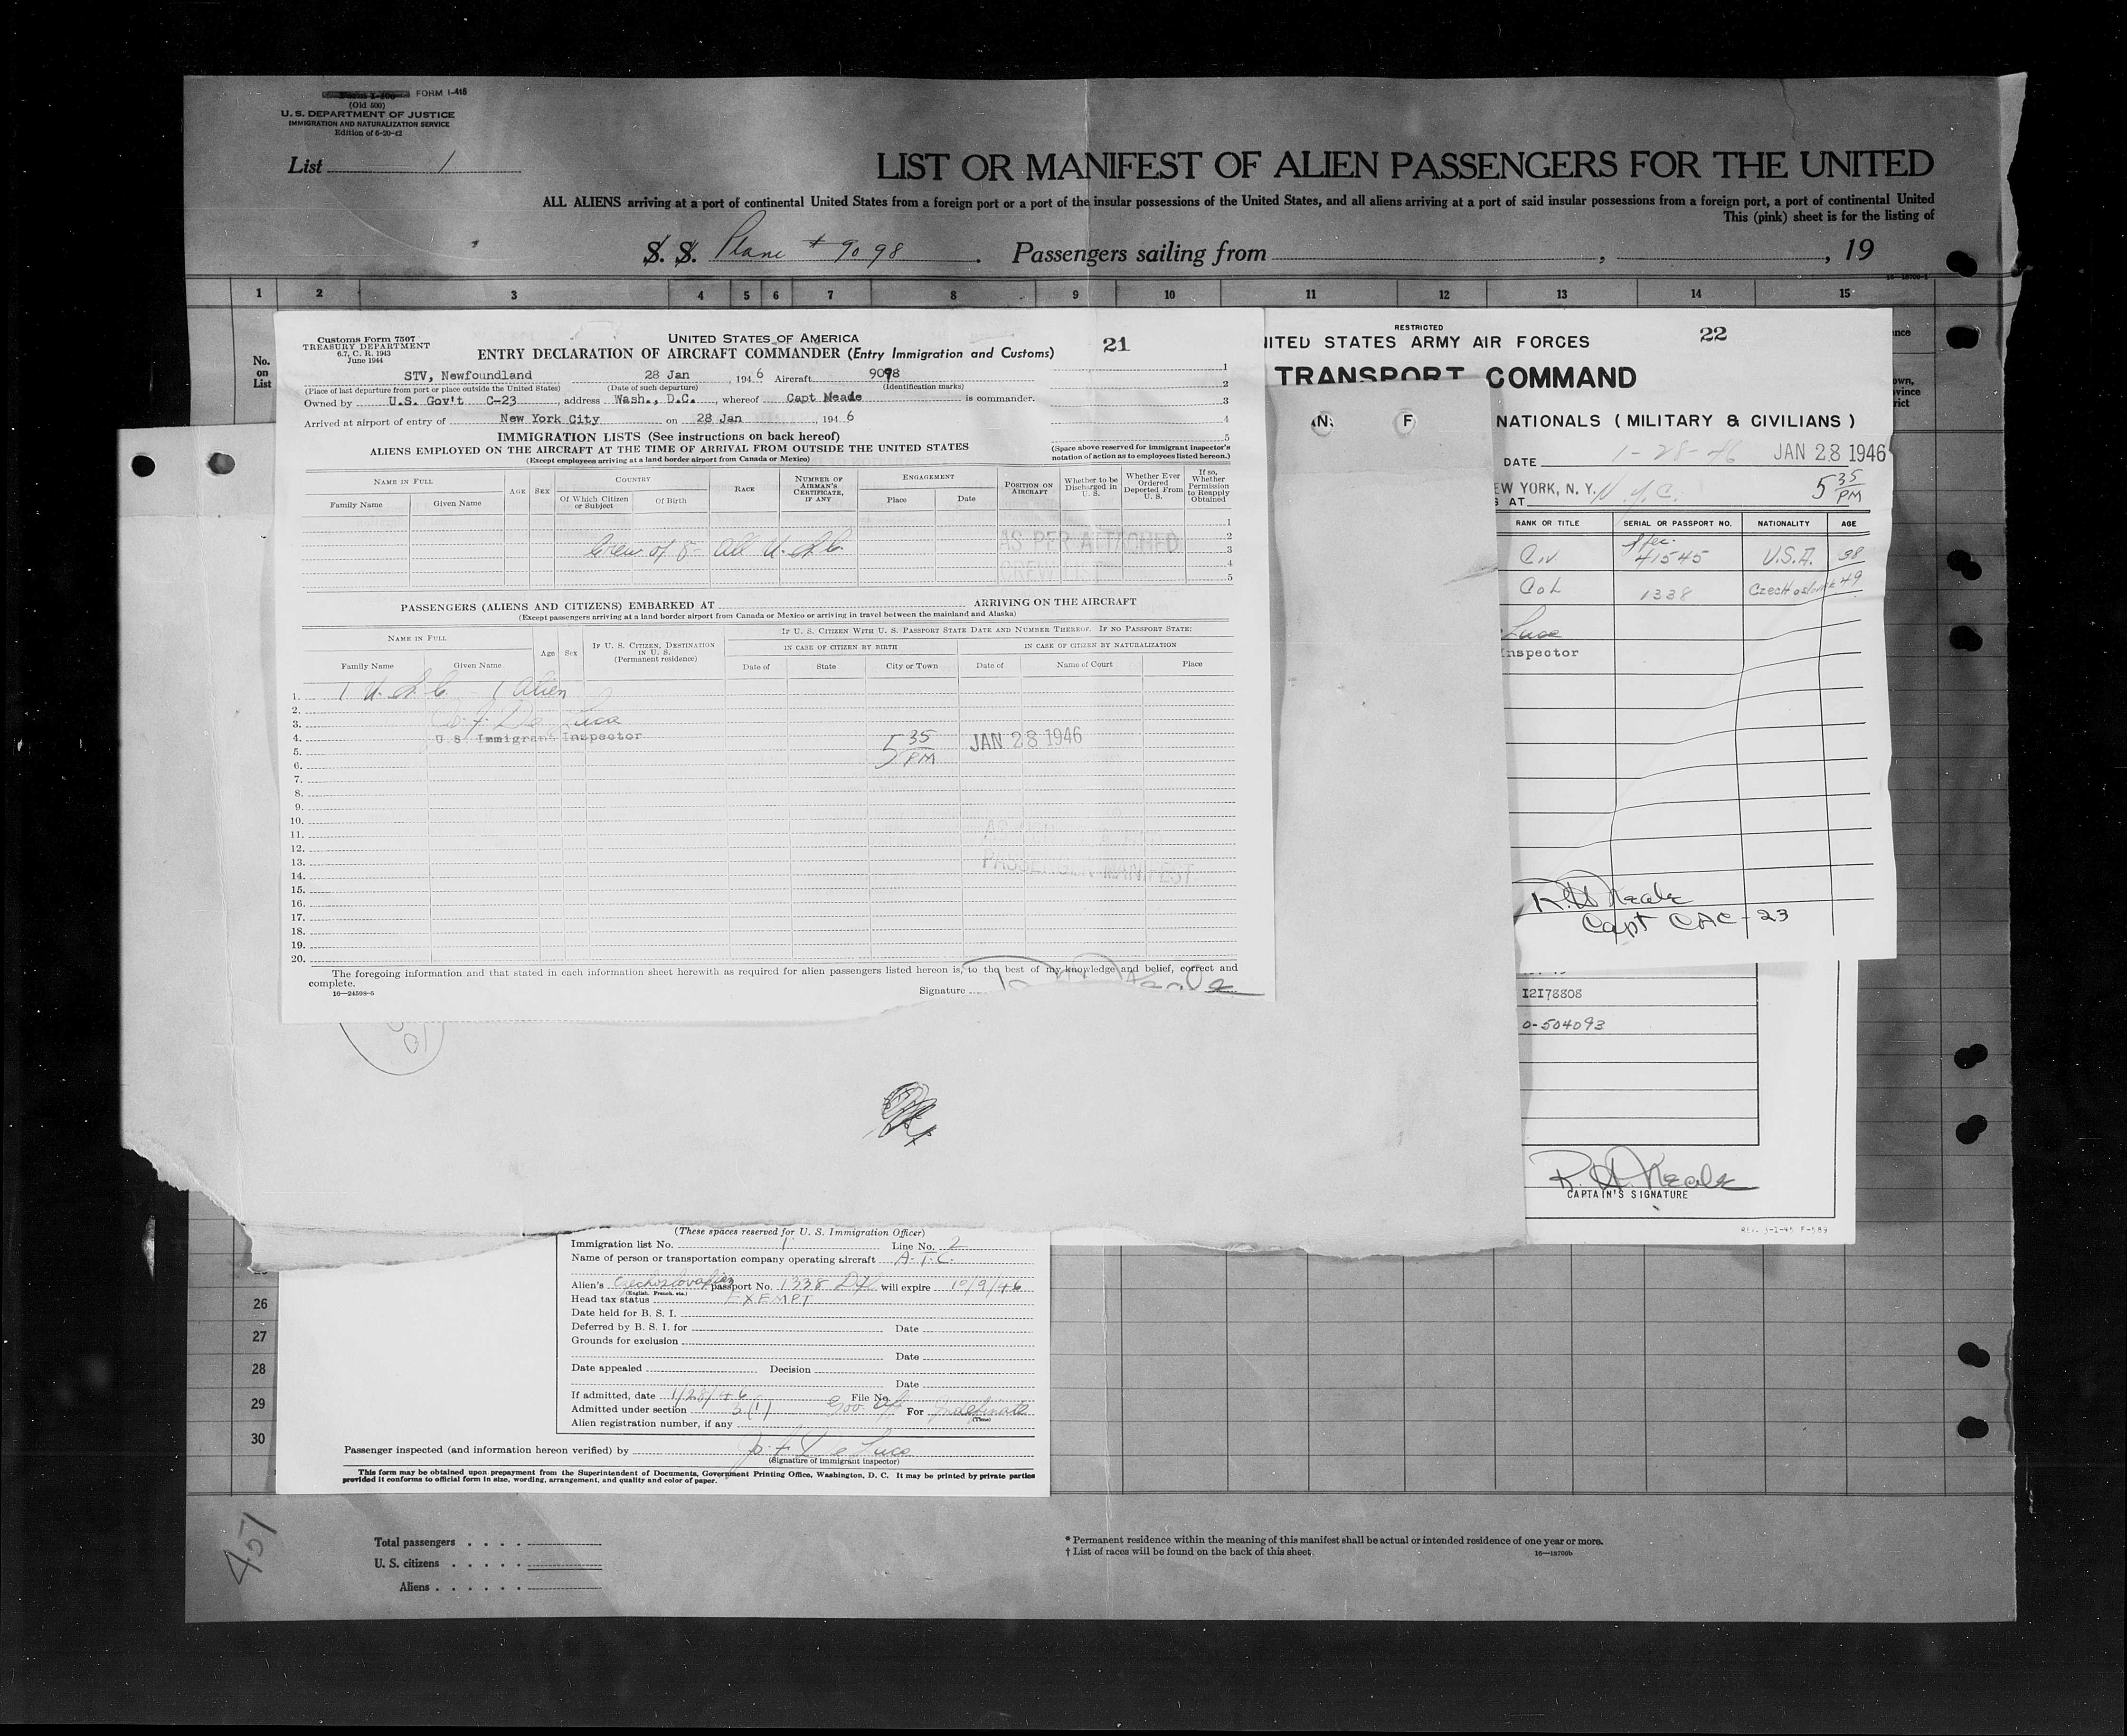 FORM I-415
(Old 500)
U. S. DEPARTMENT OF JUSTICE
IMMIGRATION AND NATURALIZATION SERVICE
Edition of 6-20-42
List 1
LIST OR MANIFEST OF ALIEN PASSENGERS FOR THE UNITED
ALL ALIENS arriving at a port of continental United States from a foreign port or a port of the insular possessions of the United States, and all aliens arriving at a port of said insular possessions from a foreign port, a port of continental United
This (pink) sheet is for the listing of
S. S. Plane # 9098. Passengers sailing from , , 19
1 2 3 4 5 6 7 8 9 10 11 12 13 14 15
No. on List
Customs Form 7507
TREASURY DEPARTMENT
6.7, C. R. 1943
June 1944
UNITED STATES OF AMERICA
ENTRY DECLARATION OF AIRCRAFT COMMANDER (Entry Immigration and Customs)
21
STV, Newfoundland 28 Jan , 194 6 Aircraft 9098
(Place of last departure from port or place outside the United States) (Date of such departure) (Identification marks)
Owned by U.S. Gov't C-23 , address Wash., D.C. , whereof Capt Meade is commander.
Arrived at airport of entry of New York City on 28 Jan , 194 6
1
2
3
4
5
IMMIGRATION LISTS (See instructions on back hereof)
ALIENS EMPLOYED ON THE AIRCRAFT AT THE TIME OF ARRIVAL FROM OUTSIDE THE UNITED STATES
(Except employees arriving at a land border airport from Canada or Mexico)
(Space above reserved for immigrant inspector's notation of action as to employees listed hereon.)
NAME IN FULL
Family Name Given Name
AGE SEX
COUNTRY
Of Which Citizen or Subject Of Birth
RACE
NUMBER OF AIRMAN'S CERTIFICATE, IF ANY
ENGAGEMENT
Place Date
POSITION ON AIRCRAFT
Whether to be Discharged in U. S.
Whether Ever Ordered Deported From U. S.
If so, Whether Permission to Reapply Obtained
1
2
3
4
5
Crew of 5- All U.S.C.
AS PER ATTACHED
CREW LIST
PASSENGERS (ALIENS AND CITIZENS) EMBARKED AT ARRIVING ON THE AIRCRAFT
(Except passengers arriving at a land border airport from Canada or Mexico or arriving in travel between the mainland and Alaska)
NAME IN FULL
Family Name Given Name
Age Sex
IF U. S. CITIZEN, DESTINATION IN U. S. (Permanent residence)
IF U. S. CITIZEN WITH U. S. PASSPORT STATE DATE AND NUMBER THEREOF. IF NO PASSPORT STATE:
IN CASE OF CITIZEN BY BIRTH IN CASE OF CITIZEN BY NATURALIZATION
Date of State City or Town Date of Name of Court Place
1. 1 U.S.C. - 1 Alien
2.
3. Jo. F. De Luca
4. U.S. Immigrant Inspector 5 35 PM JAN 28 1946
5.
6.
7.
8.
9.
10.
11.
12.
13.
14. PASSENGER MANIFEST
15.
16.
17.
18.
19.
20.
The foregoing information and that stated in each information sheet herewith as required for alien passengers listed hereon is, to the best of my knowledge and belief, correct and complete.
16-24598-6
Signature
RESTRICTED
22
ITED STATES ARMY AIR FORCES
TRANSPORT COMMAND
NATIONALS ( MILITARY & CIVILIANS )
DATE 1-28-46 JAN 28 1946
EW YORK, N. Y. N.Y.C. 5 35 PM
AT
RANK OR TITLE SERIAL OR PASSPORT NO. NATIONALITY AGE
Civ Spec. 41545 U.S.A. 38
Col 1338 49
Luca
Inspector
Capt CAC-23
0-504093
CAPTAIN'S SIGNATURE
REV. 3-1-45 F-589
(These spaces reserved for U. S. Immigration Officer)
Immigration list No. 1 Line No. 2
Name of person or transportation company operating aircraft A.T.C.
Alien's Czechoslovakian passport No. 1338 will expire 10/9/46
(English, French, etc.)
Head tax status EXEMPT
Date held for B. S. I.
Deferred by B. S. I. for Date
Grounds for exclusion
Date
Date appealed Decision
Date
If admitted, date 1/28/46 File No.
Admitted under section 3(1) For
(Time)
Alien registration number, if any
Passenger inspected (and information hereon verified) by Jo. F. De Luca
(Signature of immigrant inspector)
This form may be obtained upon prepayment from the Superintendent of Documents, Government Printing Office, Washington, D. C. It may be printed by private parties
provided it conforms to official form in size, wording, arrangement, and quality and color of paper.
26
27
28
29
30
Total passengers
U. S. citizens
Aliens
* Permanent residence within the meaning of this manifest shall be actual or intended residence of one year or more.
† List of races will be found on the back of this sheet.